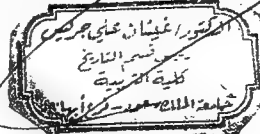 الدكتور/ غيثان علي جريس
رئيس قسم التاريخ
كلية التربية
جامعة الملك سعود - فرع أبها